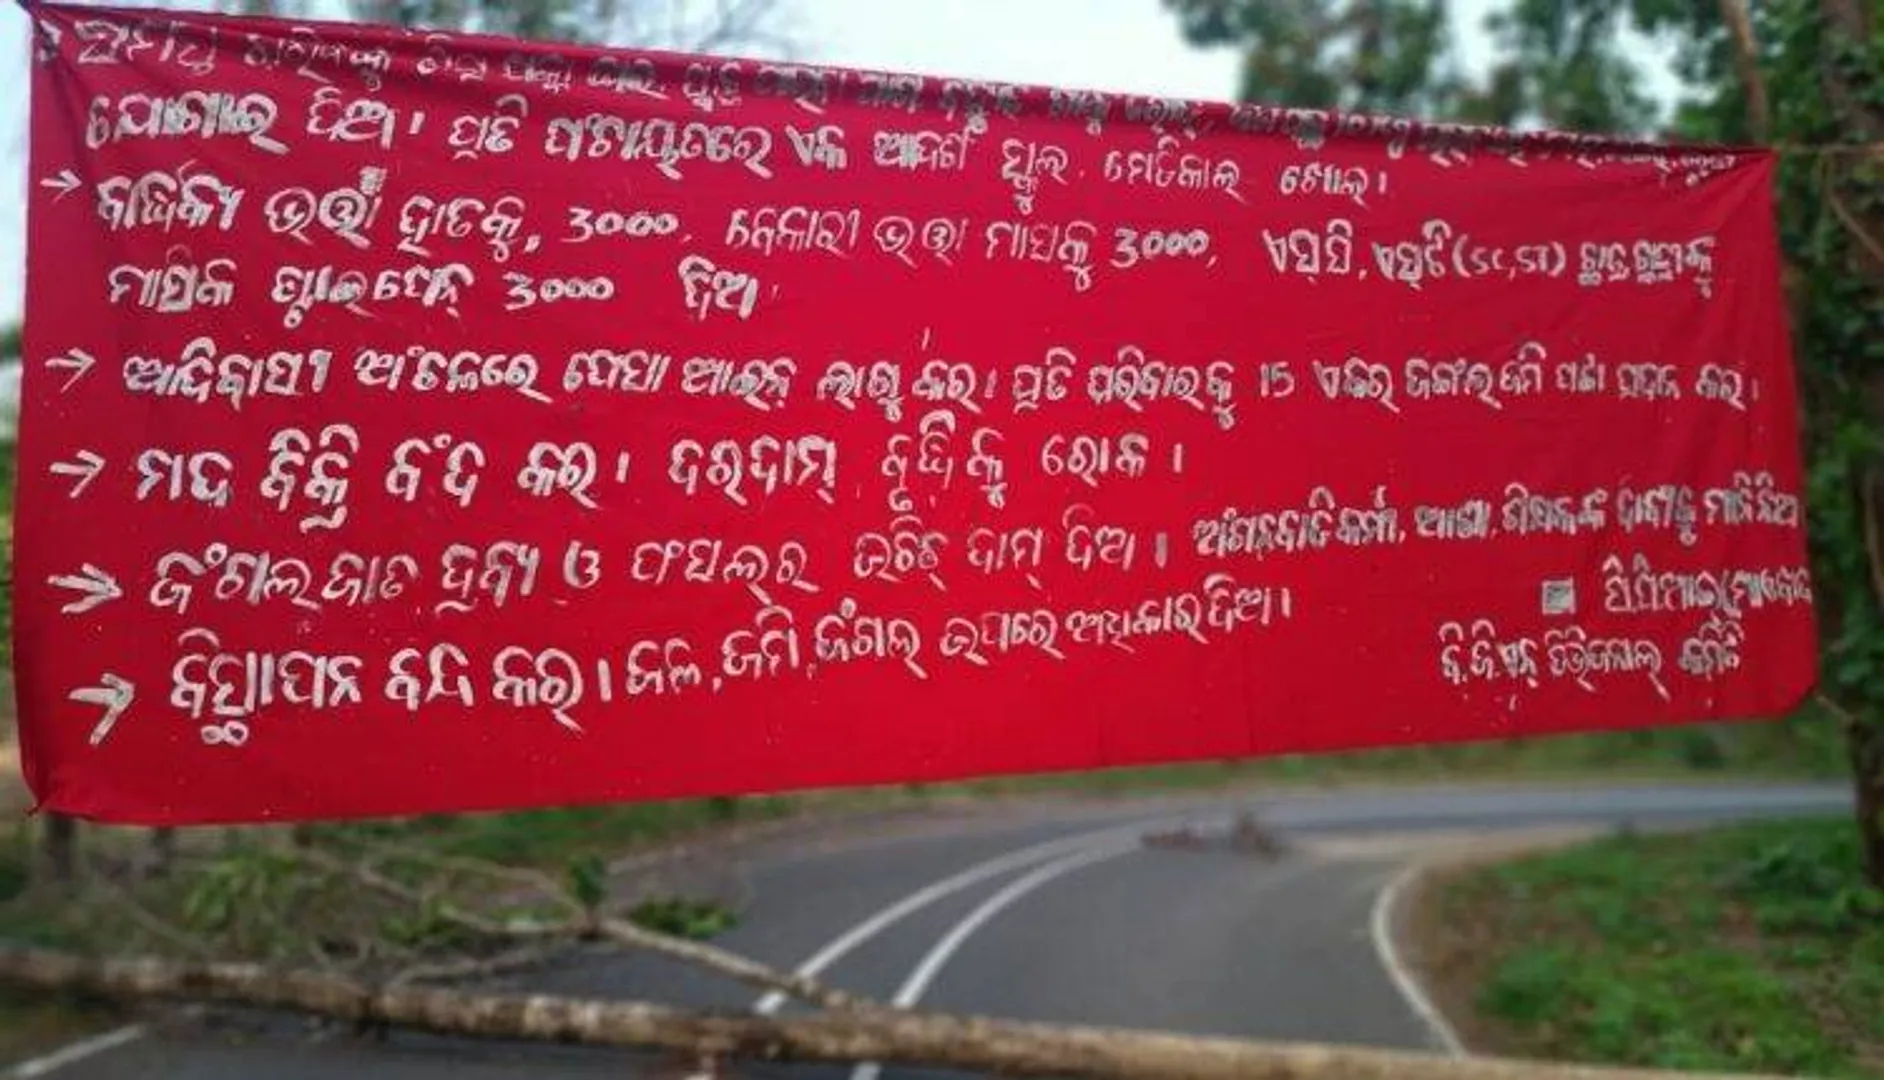 ଯୋଗାଇ ଦିଅ। ପ୍ରତି ପଂଚାୟତରେ ଏକ ଆଦର୍ଶ ସ୍କୁଲ, ମେଡିକାଲ ଖୋଲ।
→ ବାର୍ଦ୍ଧିକ୍ୟ ଭର୍ତ୍ତା ହାତକୁ, 3000, ବେକାରୀ ଭତ୍ତା ମାସକୁ 3000, ଏସ୍‌ସି, ଏସ୍‌ଟି (SC, ST) ଛାତ୍ରଛାତ୍ରୀଙ୍କୁ
ମାସିକ ଷ୍ଟାଇପେନ୍ 3000 ଦିଅ।
→ ଆଦିବାସୀ ଅଂଚଳରେ ପେସା ଆଇନ ଲାଗୁ କର। ପ୍ରତି ପରିବାରକୁ 15 ଏକର ଜଙ୍ଗଲ ଜମି ପଟ୍ଟା ପ୍ରଦାନ କର।
→ ମଦ ବିକ୍ରି ବଂଦ କର। ଦରଦାମ୍ ବୃଦ୍ଧିକୁ ରୋକ।
→ ଜଂଗଲ ଜାତ ଦ୍ରବ୍ୟ ଓ ଫସଲ୍‌ର ଉଚିତ୍ ଦାମ୍ ଦିଅ। ଅଂଗନବାଡିକର୍ମୀ, ଆଶା, ଶିକ୍ଷକଙ୍କ ଦାବୀକୁ ମାନି ନିଅ
→ ବିସ୍ଥାପନ ବନ୍ଦ କର। ଜଳ, ଜମି, ଜଂଗଲ ଉପରେ ଅଧିକାର ଦିଅ।
ସିପିଆଇ (ମାଓବାଦୀ
ବି.ଜି.ଏନ୍ ଡିଭିଜନାଲ୍ କମିଟି